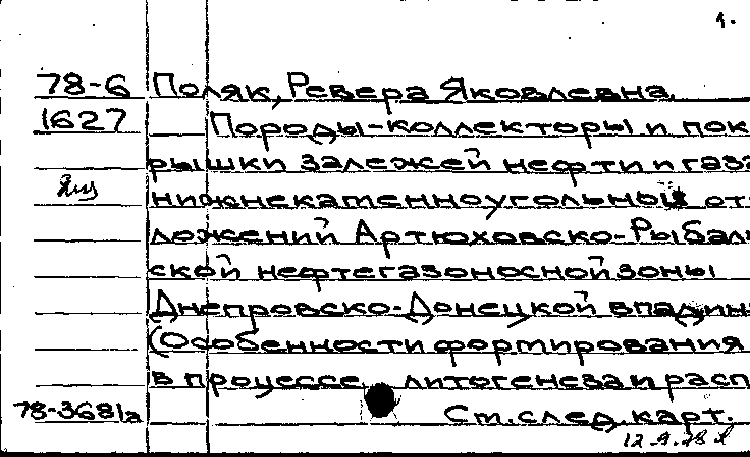 1.
78-6 Поляк, Ревера Яковлевна.
1627 Породы-коллекторы и пок
рышки залежей нефти и газа
нижнекаменноугольных от
ложений Артюховско-Рыбаль
ской нефтегазоносной зоны
Днепровско-Донецкой впадины
(Особенности формирования
в процессе литогенеза и расп
78-3681а См. след. карт.
12.9.78